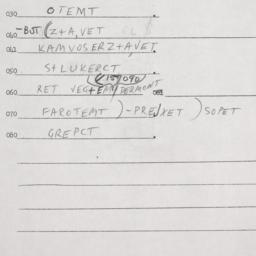 030 OTEMT
040 -BUT (Z+A,VET
KAMVOSERZ+A,VET.
050 S+LUKERCT
(159090
060 RET VEG+EAM/DERMONT
070 FAROTEMT )-PRE/XET ) SOPET
080 GREPCT